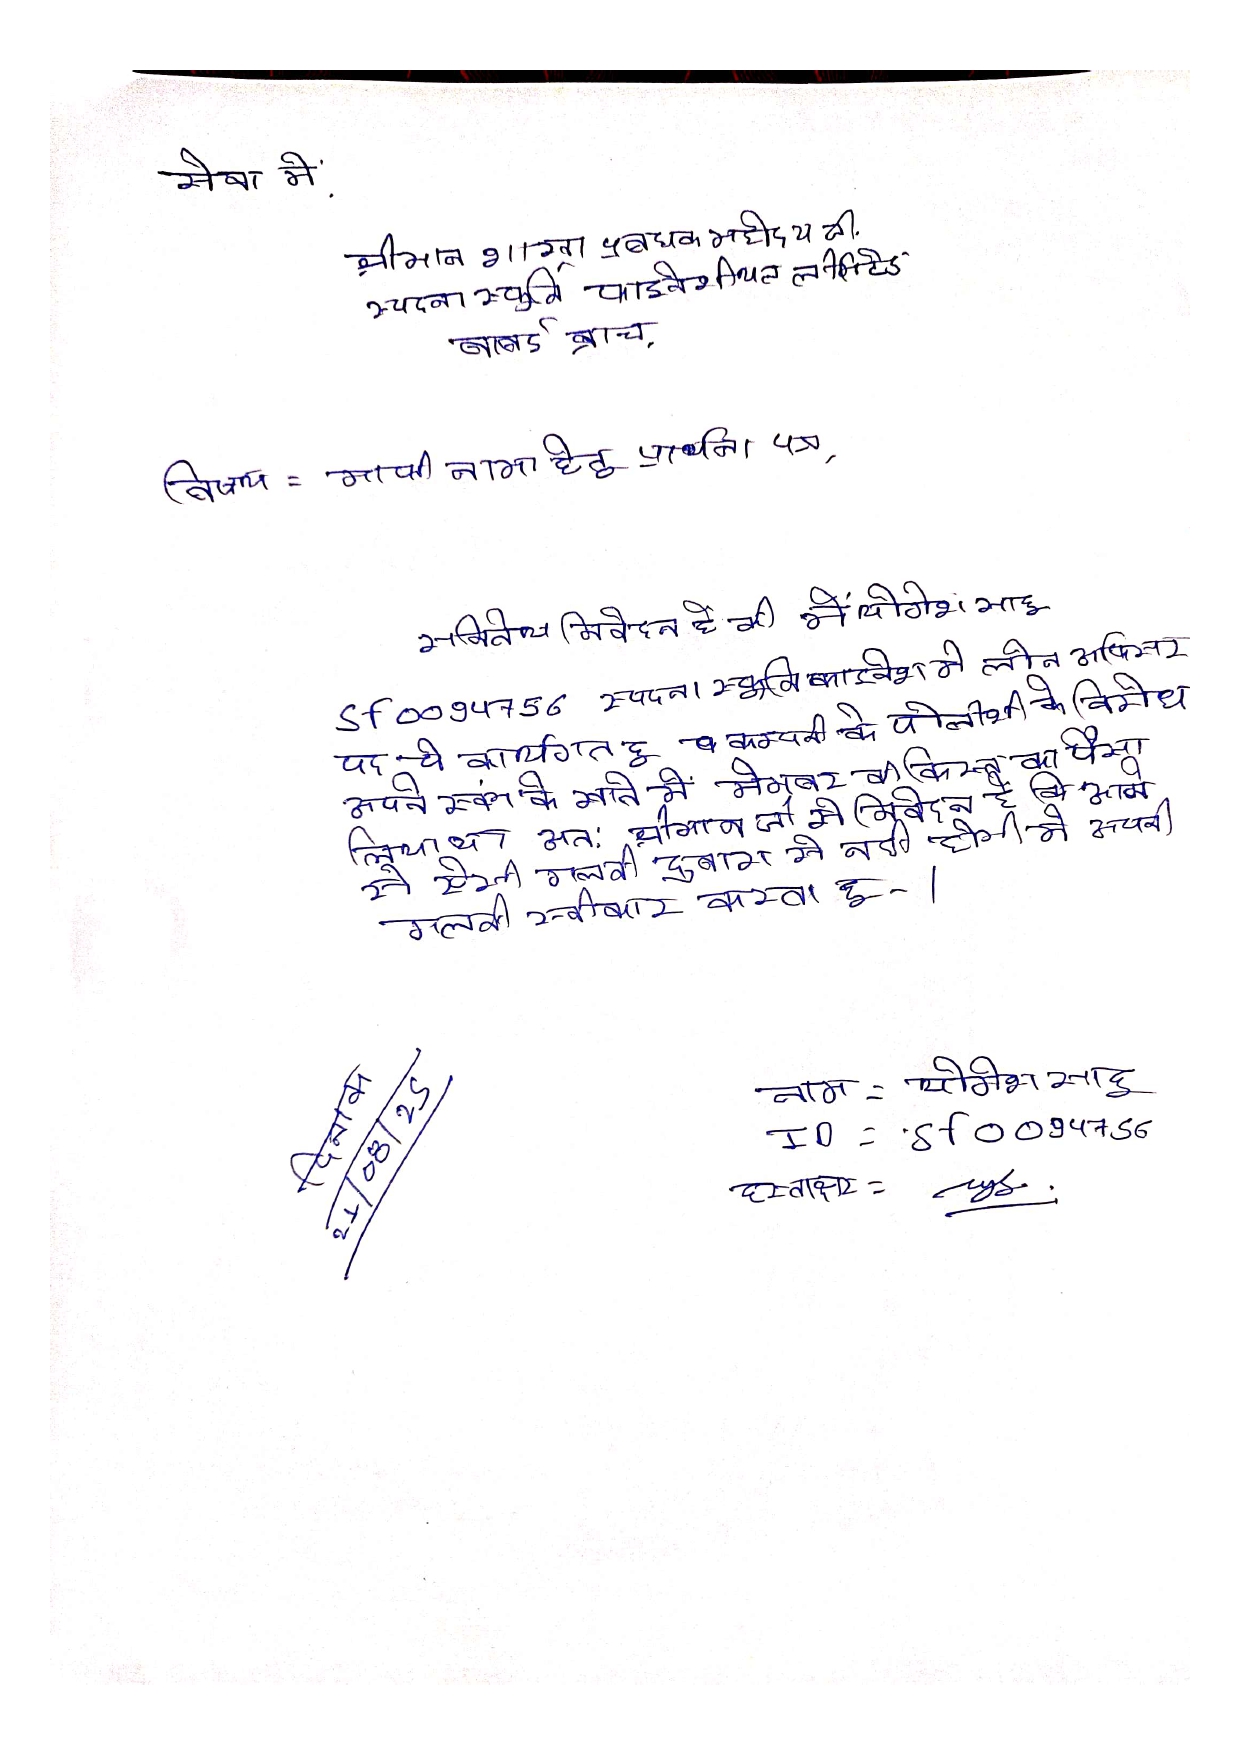 सेवा में,
श्रीमान शाखा प्रबधक महोदय जी.
स्पदना स्फुर्ति फाइनेशीयल लीमिटेड
ब्राच,
विषय = माफी नामा हेतु प्रार्थना पत्र,
सविनय निवेदन हैं की मैं योगेश साहु
Sf0094756 स्पदना स्फुर्ति फाइनेंश मे लोन अफिसर
पद पे कार्यगत हु व कम्पनी के पोलीशी के विरोध
अपने स्वंम के खाते में मेम्बर की किस्त का पैसा
लिया था अत: श्रीमान जी से निवेदन है कि आगे
से ऐसी गलती दुबारा से नही होगी मे अपनी
गलती स्वीकार करता हु - |
नाम = योगेश साहु
ID = Sf0094756
हस्ताक्षर =
दिनांक
21/08/25